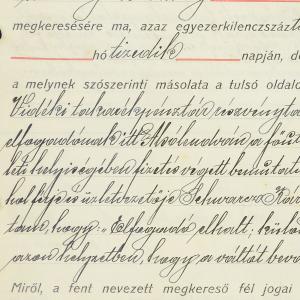 megkeresésére ma, azaz egyezerkilenczszázt
hó tizedik napján, de
a melynek szószerinti másolata a tulsó oldalo
Vidéki takarékpénztár részvényta
elfogadónak itt Alsólendván a főüz
leti helyiségében fizetés végett bemutat
hol férje és üzletvezetője Schwarcz
tam, hogy: „Elfogadó elhalt; külö
azon helyzetben, hogy a váltót bevá
Miről, a fent nevezett megkereső fél jogai